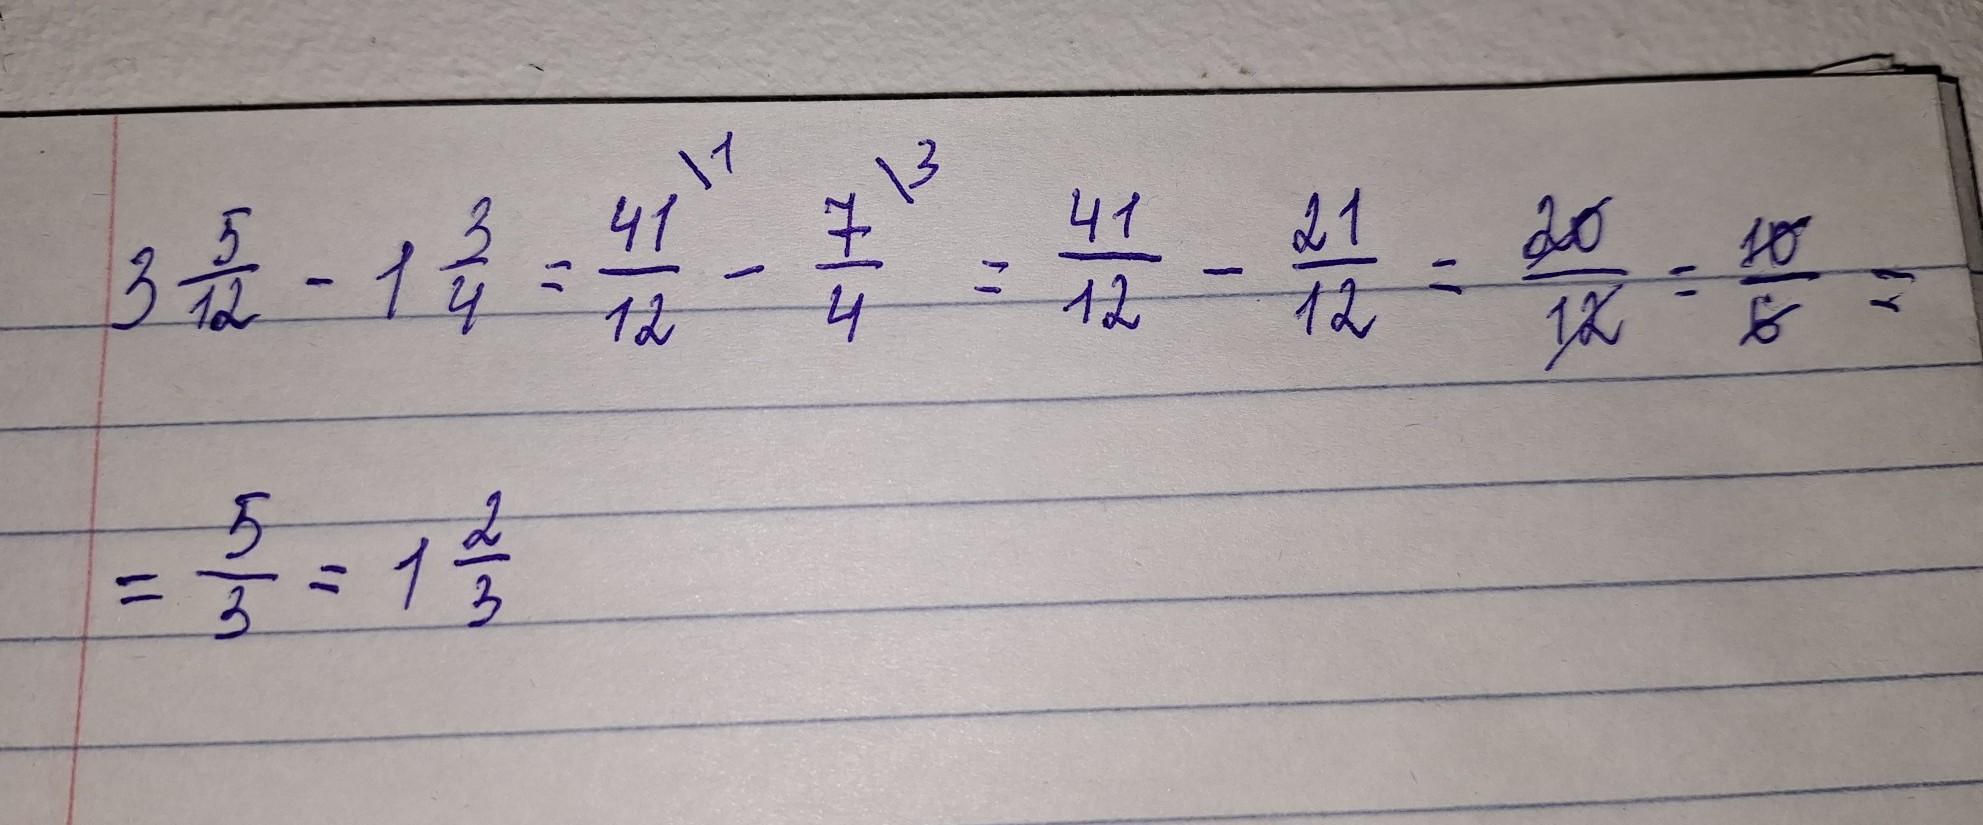 3 5/12 - 1 3/4 = 41/12 \1 - 7/4 \3 = 41/12 - 21/12 = 20/12 = 10/6 =
= 5/3 = 1 2/3